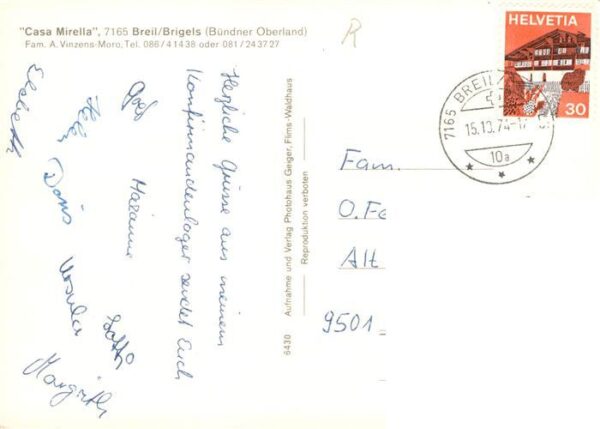 "Casa Mirella", 7165 Breil/Brigels (Bündner Oberland)
Fam. A. Vinzens-Moro, Tel. 086/41438 oder 081/243727
Herzliche Grüsse aus meinem
Konfirmandenlager sendet Euch
Doris
Ursula
Margrith
6430 Aufnahme und Verlag Photohaus Geiger, Flims-Waldhaus
Reproduktion verboten
HELVETIA
30
7165 BREIL
15.10.74-1
10a
Fam.
O. Fe
Alt
9501